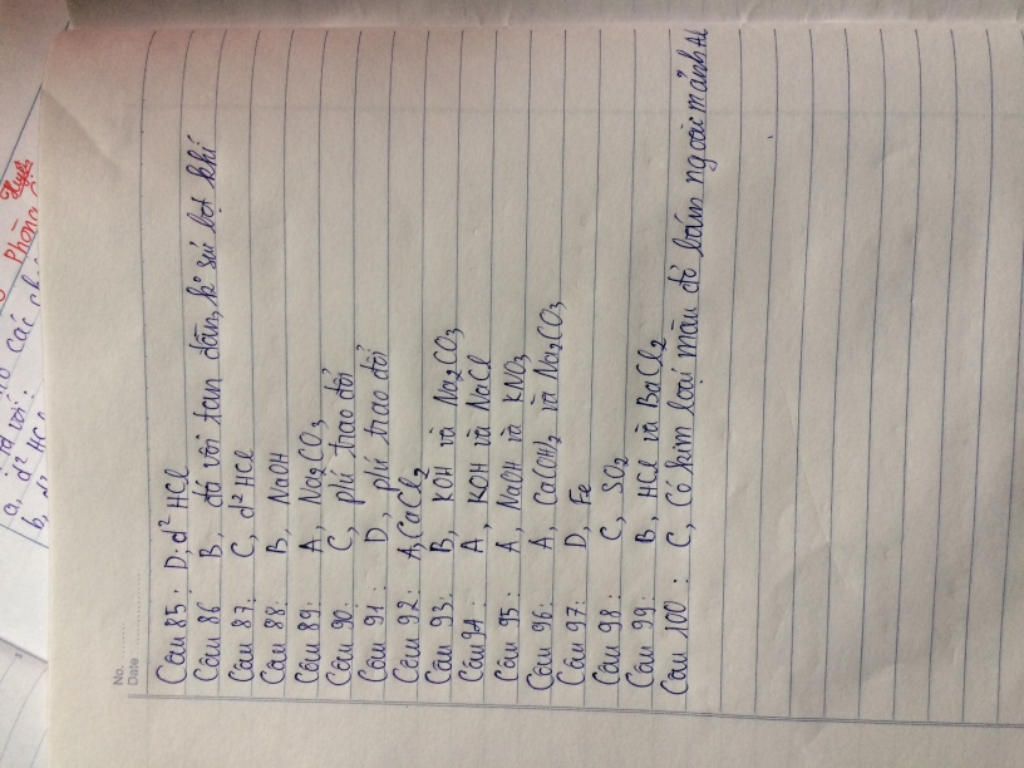 No.
Date
Câu 85: D, d² HCl
Câu 86 B, đá vôi tan dần, k sủi bọt khí
Câu 87: C, d² HCl
Câu 88: B, NaOH
Câu 89: A, Na₂CO₃
Câu 90: C, pứ trao đổi
Câu 91: D, pứ trao đổi
Câu 92: A, CaCl₂
Câu 93: B, KOH và Na₂CO₃
Câu 94: A, KOH và NaCl
Câu 95: A, NaOH và KNO₃
Câu 96: A, CaCOH₂ và Na₂CO₃
Câu 97: D, Fe
Câu 98: C, SO₂
Câu 99: B, HCl và BaCl₂
Câu 100: C, Có kim loại màu đỏ bám ngoài mảnh Al
Phòng
các
với:
a, d² HCl
b,